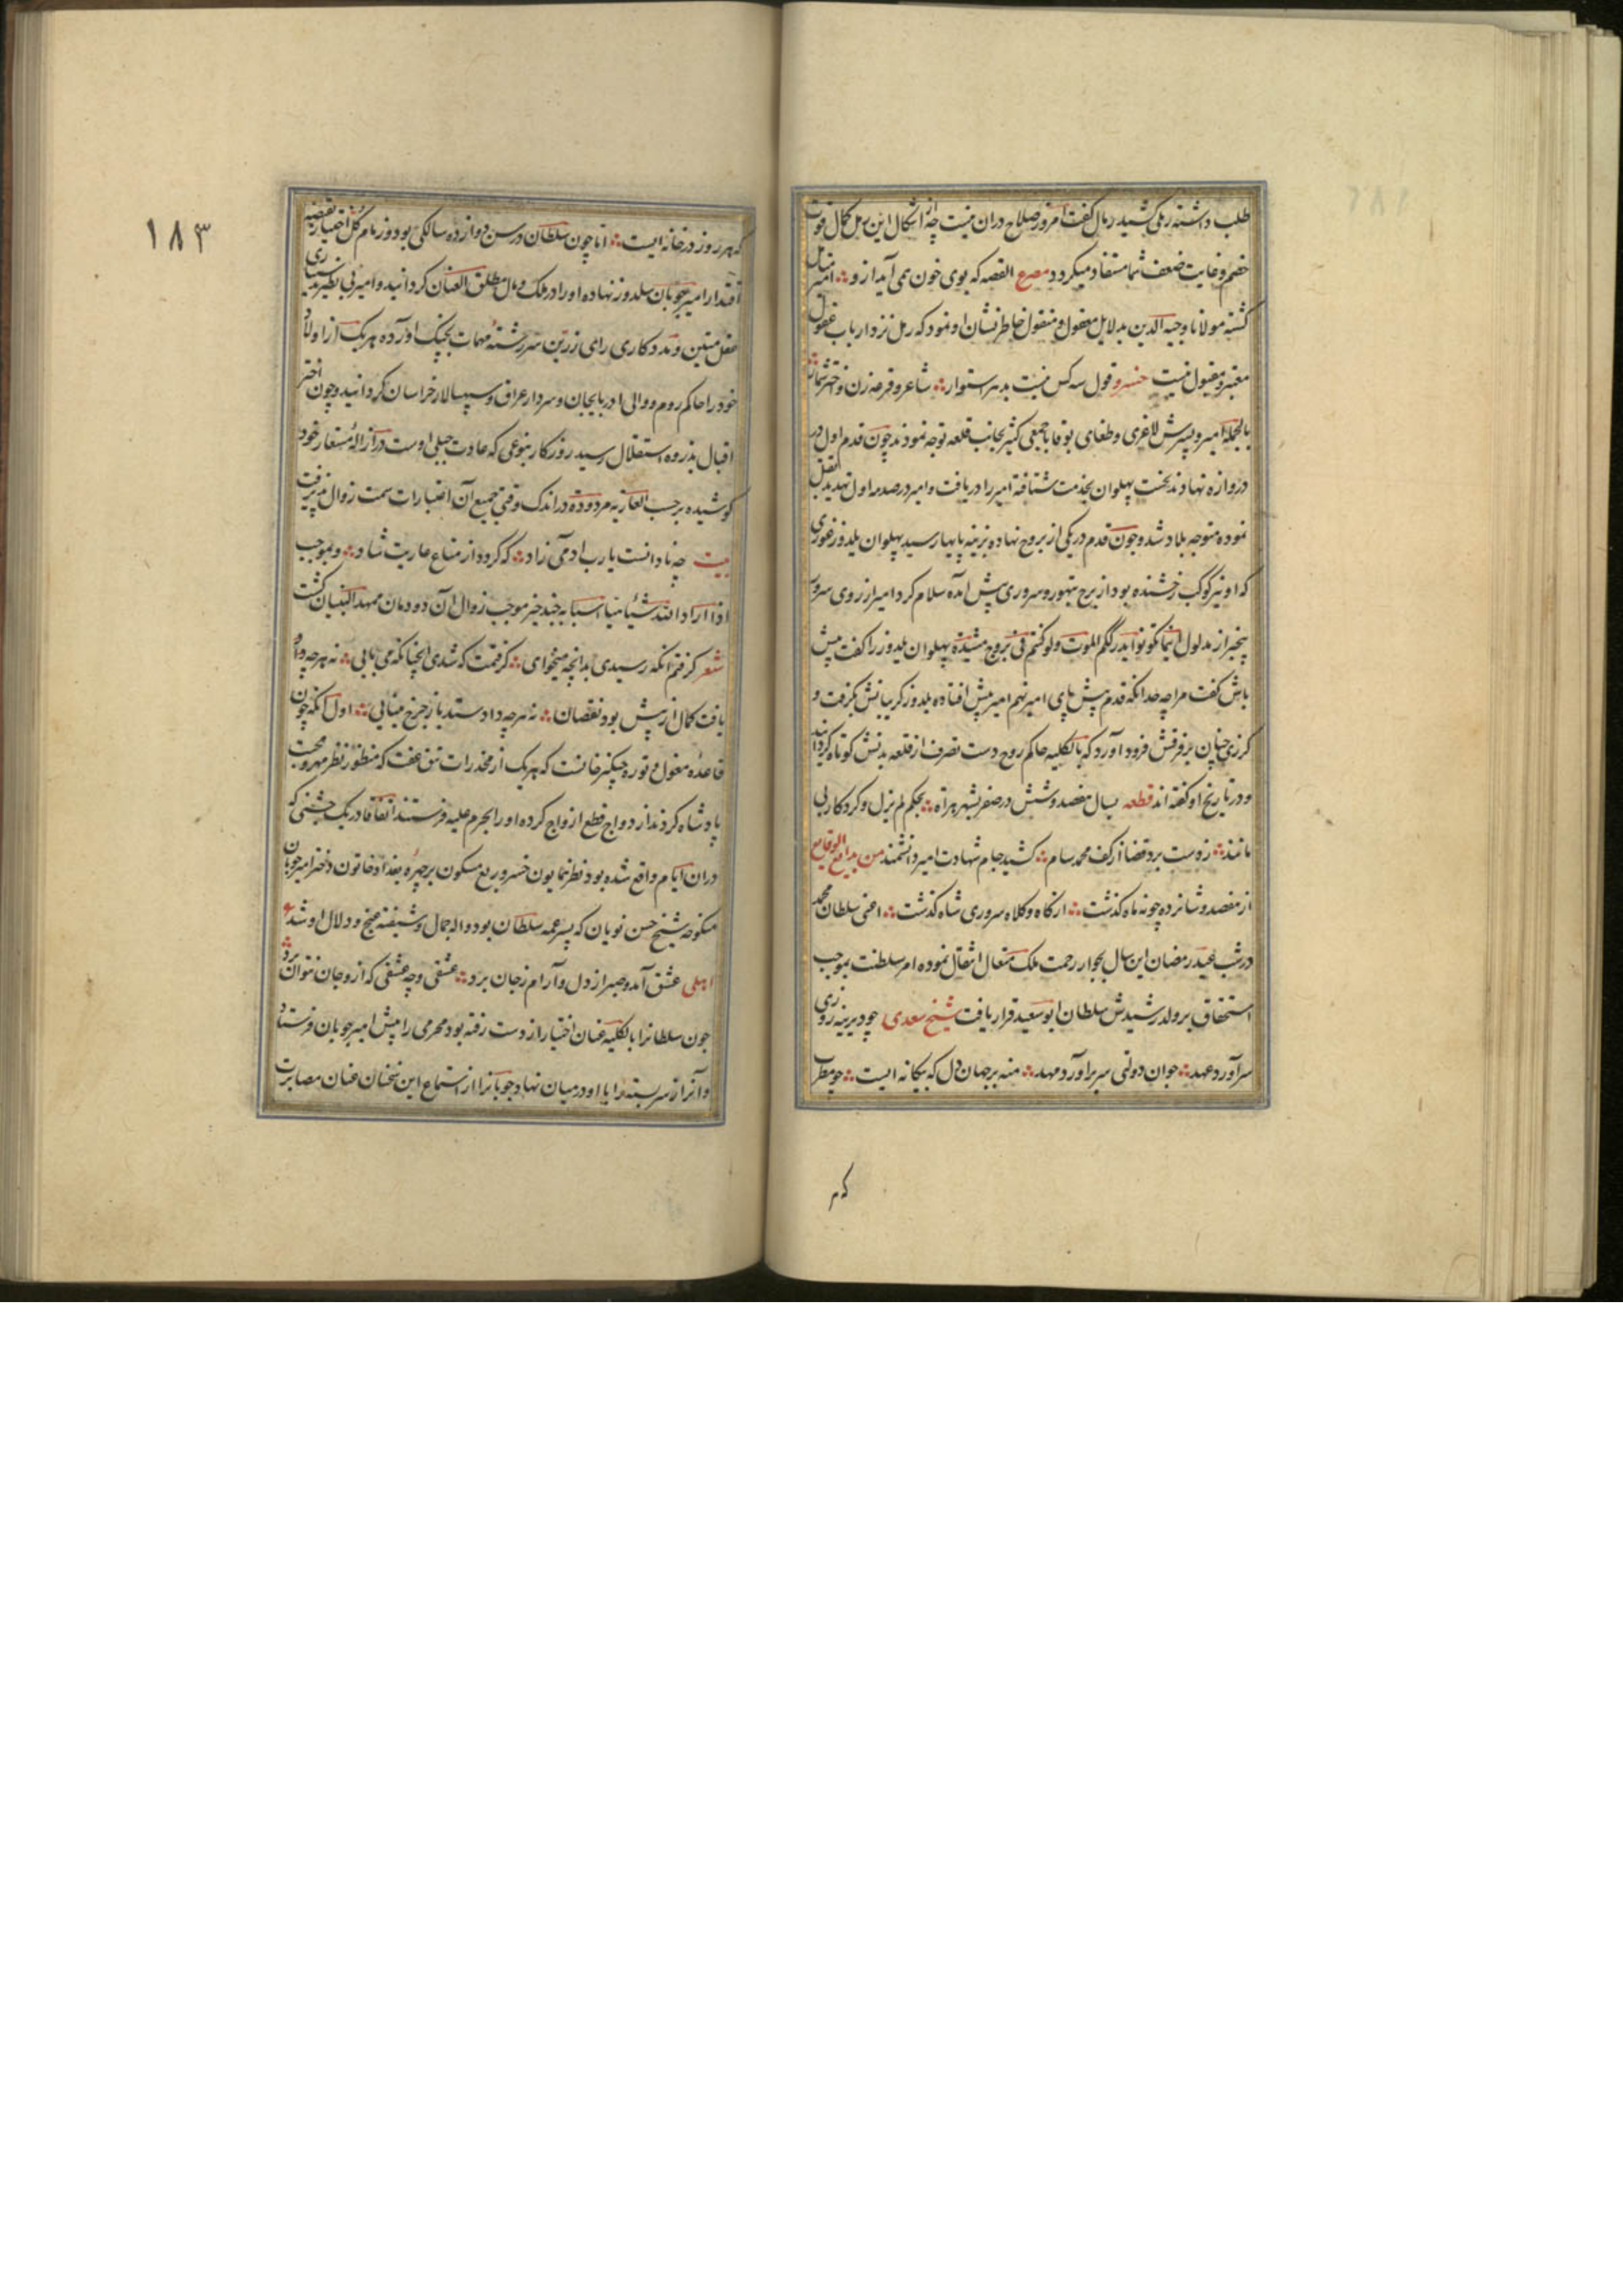 طلب داشته رملی کشید رمال گفت امروز صلاح دران نیست چه از اشکال این رمل کمال قوت
خصم و غایت ضعف شما مستفاد میگردد مصرع القصه که بوی خون همی آید ازو امیر
کشته مولانا وجیه الدین بدلایل معقول و منقول خاطر نشان او نمود که رمل نزد ارباب عقول
معتبر و مقبول نیست خسرو قول سه کس نیست بدهر استوار شاعر و قرعه زن و اخترشمار
بالجمله امیر و پسرش لاغری و طغای بوقا با جمعی کثیر بجانب قلعه توجه نمودند چون قدم اول در
دروازه نهادند نخست پهلوان بخدمت شتافته امیر را دریافت و امیر در صدمه اول تهدید
نموده متوجه بلاد شد و چون قدم در یکی از بروج نهاده بزینه پایها رسید پهلوان یلدوز غوری
که او نیز کوکب رخشنده بود از برج تهور و سروری پیش آمده سلام کرد امیر از روی سرور
بیخبر از مدلول اینما تکونوا یدرککم الموت ولو کنتم فی بروج مشیده پهلوان یلدوز را گفت پیش
باش گفت مرا چه حد آنکه قدم پیش پای امیر نهم امیر پیش افتاده یلدوز گریبانش بگرفت و
گرزی چنان بر فرقش فرود آورد که بالکلیه حاکم روح دست تصرف از قلعه بدنش کوتاه گردانید
و در تاریخ او گفته اند قطعه بسال هفصد و شش در صفر بشهر هراة بحکم لم یزل و کردکار بی
مانند ز دست برد قضا از کف محمد سام کشید جام شهادت امیر دانشمند من بدایع الوقایع
از هفصد و شانزده چو نه ماه گذشت از گاه و کلاه سروری شاه گذشت اعنی سلطان محمد
در شب عید رمضان این سال بجوار رحمت ملک متعال انتقال نموده امر سلطنت بموجب
استحقاق بر ولد رشیدش سلطان ابوسعید قرار یافت شیخ سعدی چو دیرینه روزی
سرآورد عهد جوان دولتی سر برآورد مهد منه بر جهان دل که بیگانه ایست چو مطرب
که هر
۱۸۳
که هر روز در خانه ایست اما چون سلطان در سن دوازده سالگی بود زمام کل اختیار بقبضه
اقتدار امیر چوبان سلدوز نهاده او را در ملک و مال مطلق العنان گردانید و امیر بی نظیر بدستیاری
عقل متین و مددکاری رای زرین سر رشته مهمات بچنگ آورده هر یک از اولاد
خود را حاکم روم و والی ادربایجان و سردار عراق و سپهسالار خراسان گردانید و چون اختر
اقبال بذروه استقلال رسید روزکار بنوعی که عادت جبلی اوست در ازاله مستعار خود
کوشیده بر حسب العاریه مردوده در اندک وقتی جمیع آن اعتبارات سمت زوال پذیرفت
بیت چه نادانست یارب ادمی زاد که گردد از متاع عاریت شاد و بموجب
اذا اراد الله شیئا هیا اسبابه چند چیز موجب زوال آن دودمان ممهد البنیان گشت
شعر گرفتم آنکه رسیدی بدانچه میخواهی گرفتمت که شدی آنچنانکه می بایی نه هر چه
یافت کمال از پیش بود نقصان نه هر چه داد ستد باز چرخ مینایی اول آنکه چون
قاعده مغول و توره چنگیزخانست که هر یک از مخدرات تتق عفت که منظور نظر مهر و محبت
پادشاه گردند ازدواج قطع ازواج کرده او را بحرم علیه فرستند اتفاقا در یک جشنی که
دران ایام واقع شده بود نظر همایون خسرو ربع مسکون بر چهره بغداد خاتون دختر امیر چوبان
منکوحه شیخ حسن نویان که پسر عمه سلطان بود واله جمال و شیفته غنج و دلال او شد ع
اهلی عشق آمد و صبر از دل و آرام ز جان برد عشقی و چه عشقی که ازو جان نتوان برد
چون سلطانرا بالکلیه عنان اختیار از دست رفته بود محرمی را پیش امیر چوبان فرستاد
و آن راز سربسته را با او در میان نهاد چوبانرا از استماع این سخنان عنان مصابرت